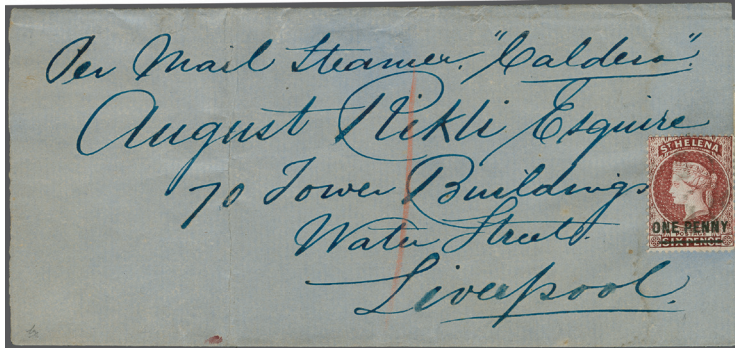 Per Mail Steamer. "Caldera".
August Rikli Esquire
70 Tower Buildings
Water Street.
Liverpool.
ST HELENA
ONE PENNY
SIX PENCE